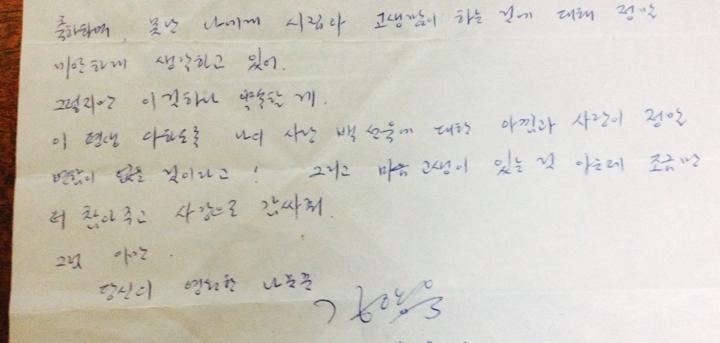 축하하며, 못난 나에게 시집와 고생많이 하는 것에 대해 정말
미안하게 생각하고 있어.
그렇지만 이것하나 약속할 게.
이 평생 다하도록 나의 사랑 백선욱에 대한 아낌과 사랑이 정말
변함이 없을 것이라고! 그리고 마음 고생이 있는 것 아는데 조금만
더 참아주고 사랑으로 감싸줘.
그럼 이만.
당신의 영원한